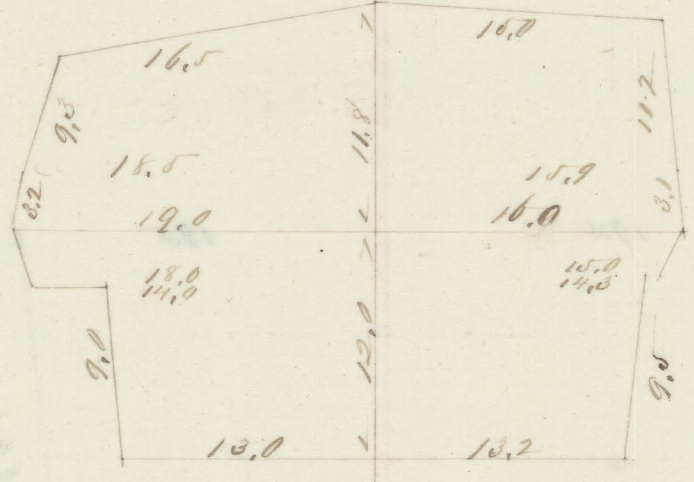 16,5
15,0
9,3
11,8
11.2
18.5
15,9
3.2
3,1
19.0
16.0
18.0
15.0
14,0
14,3
9,0
12,0
9,5
13.0
13.2